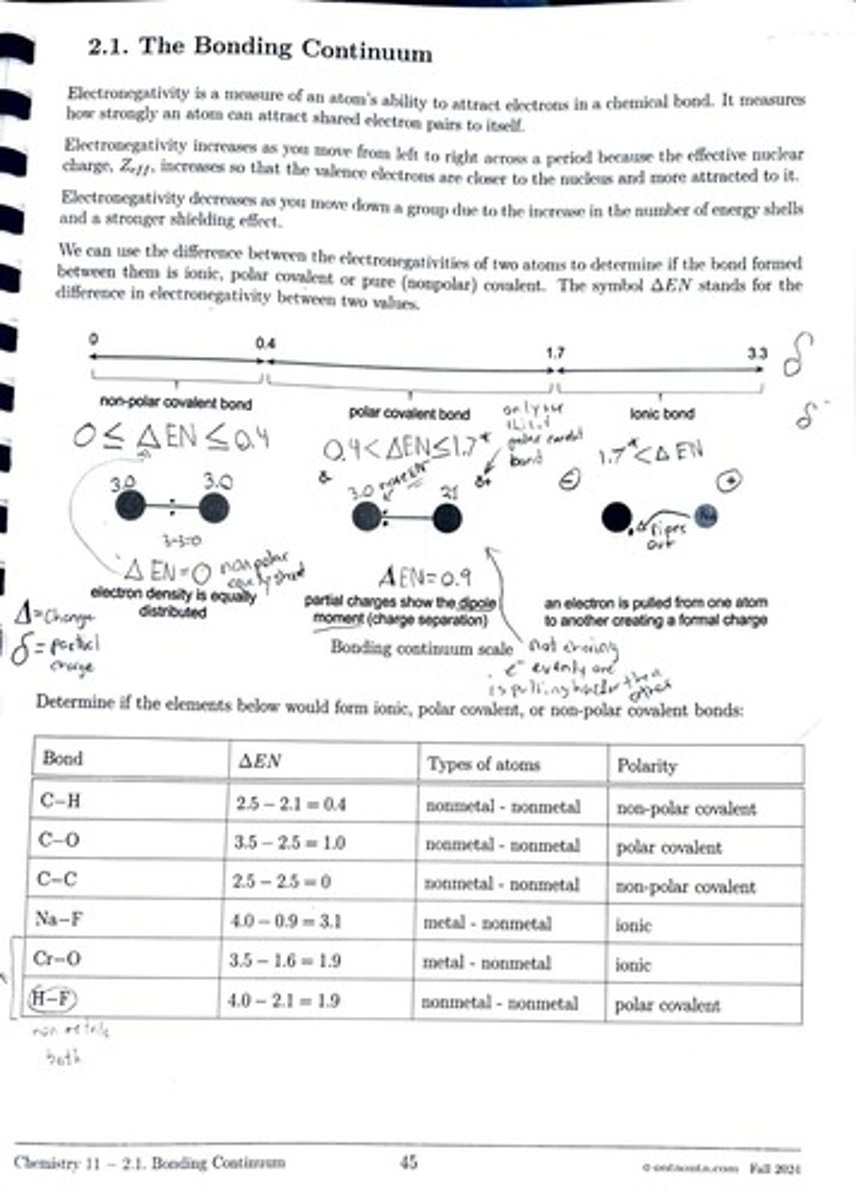 2.1. The Bonding Continuum
Electronegativity is a measure of an atom's ability to attract electrons in a chemical bond. It measures
how strongly an atom can attract shared electron pairs to itself.
Electronegativity increases as you move from left to right across a period because the effective nuclear
charge, Zeff, increases so that the valence electrons are closer to the nucleus and more attracted to it.
Electronegativity decreases as you move down a group due to the increase in the number of energy shells
and a stronger shielding effect.
We can use the difference between the electronegativities of two atoms to determine if the bond formed
between them is ionic, polar covalent or pure (nonpolar) covalent. The symbol ΔEN stands for the
difference in electronegativity between two values.
0 0.4 1.7 3.3 δ
non-polar covalent bond polar covalent bond Ionic bond δ-
0 ≤ ΔEN ≤ 0.4 0.4 < ΔEN ≤ 1.7* 1.7* < ΔEN
bond
3.0 3.0 3.0 2.1 δ+ - +
3-3=0
ΔEN=0 nonpolar
ΔEN=0.9
electron density is equally
distributed
partial charges show the dipole
moment (charge separation)
an electron is pulled from one atom
to another creating a formal charge
Δ=Change
δ = partial
charge
Bonding continuum scale
e- evenly
is pulling harder than
Determine if the elements below would form ionic, polar covalent, or non-polar covalent bonds:
Bond ΔEN Types of atoms Polarity
C–H 2.5 − 2.1 = 0.4 nonmetal - nonmetal non-polar covalent
C–O 3.5 − 2.5 = 1.0 nonmetal - nonmetal polar covalent
C–C 2.5 − 2.5 = 0 nonmetal - nonmetal non-polar covalent
Na–F 4.0 − 0.9 = 3.1 metal - nonmetal ionic
Cr–O 3.5 − 1.6 = 1.9 metal - nonmetal ionic
H–F 4.0 − 2.1 = 1.9 nonmetal - nonmetal polar covalent
non metals
both
Chemistry 11 – 2.1. Bonding Continuum 45 Fall 2024